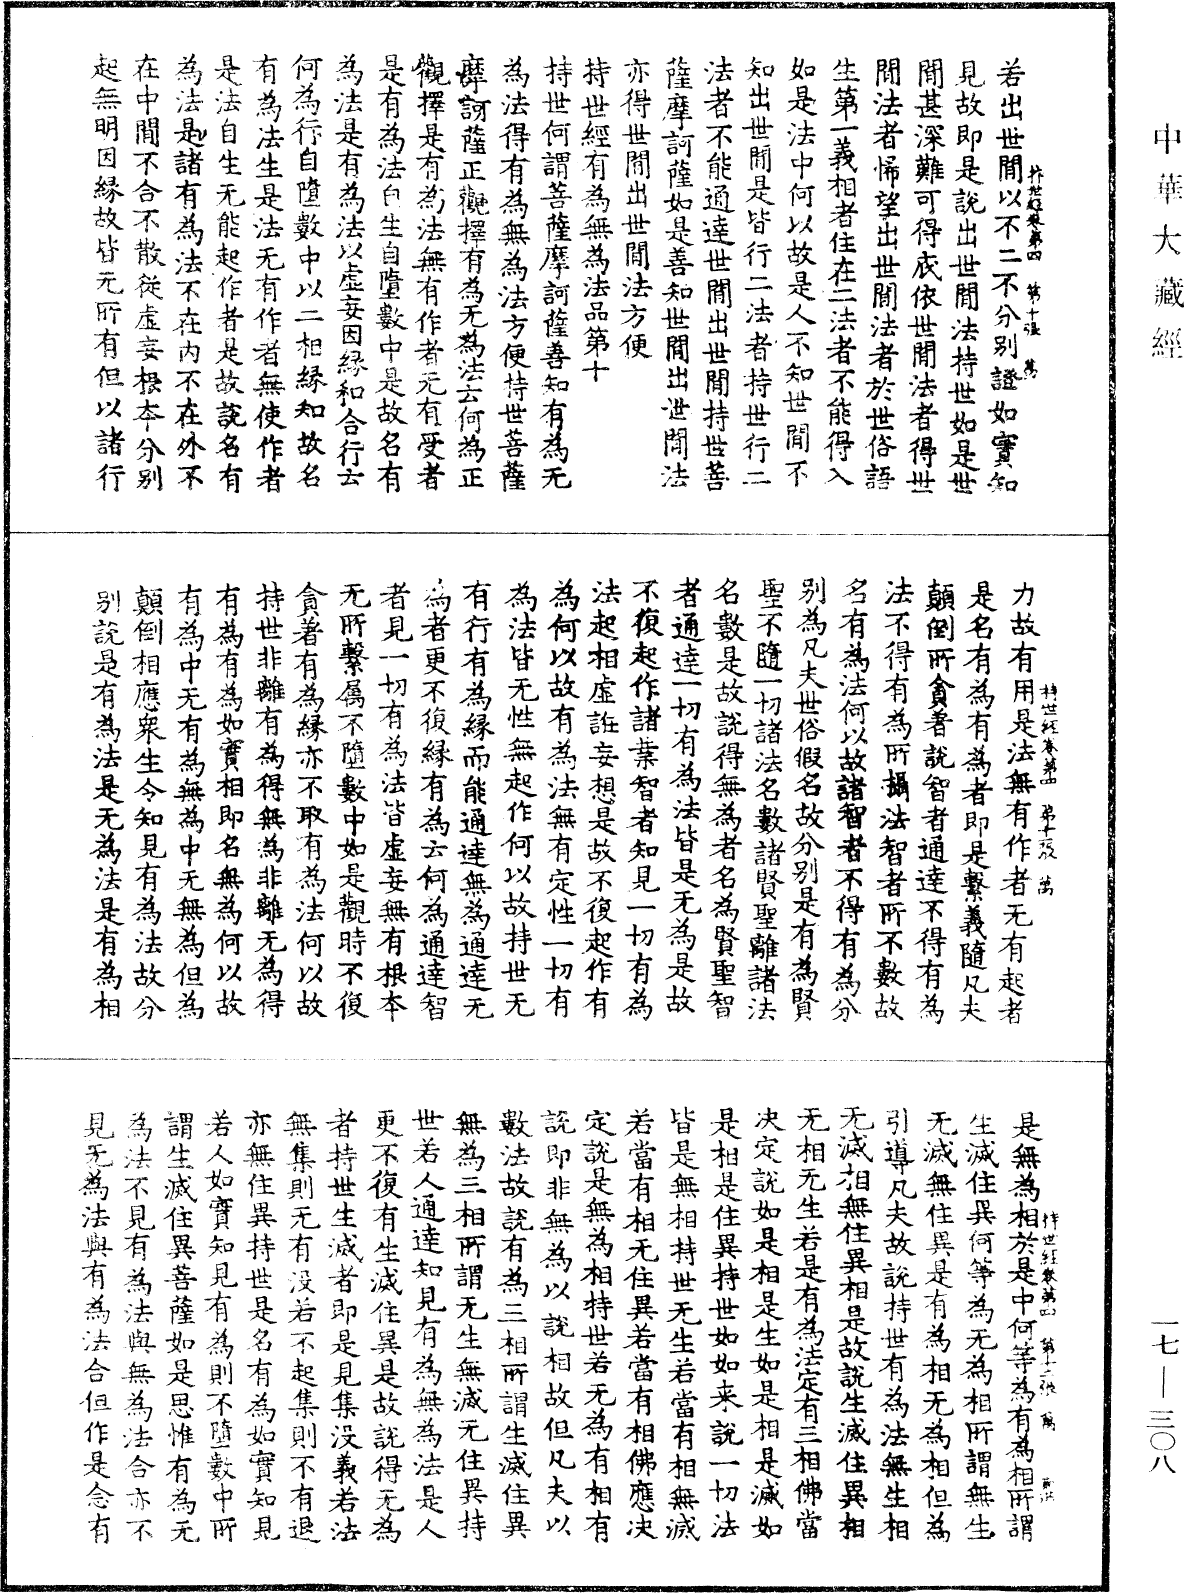 中華大藏經
若出世閒以不二不分別證如實知
見故即是說出世閒法持世如是世
閒甚深難可得底依世閒法者得世
閒法者悕望出世閒法者於世俗語
生第一義相者住在二法者不能得入
如是法中何以故是人不知世閒不
知出世閒是皆行二法者持世行二
法者不能通達世閒出世閒持世菩
薩摩訶薩如是善知世閒出世閒法
亦得世閒出世閒法方便
持世經有為無為法品第十
持世何謂菩薩摩訶薩善知有為无
為法得有為無為法方便持世菩薩
摩訶薩正觀擇有為无為法云何為正
觀擇是有為法無有作者无有受者
是有為法自生自墮數中是故名有
為法是有為法以虛妄因緣和合行云
何為行自墮數中以二相緣知故名
有為法生是法无有作者無使作者
是法自生无能起作者是故說名有
為法是諸有為法不在內不在外不
在中閒不合不散從虛妄根本分別
起無明因緣故皆无所有但以諸行
持世經卷第四 第十張 萬
力故有用是法無有作者无有起者
是名有為有為者即是繫義隨凡夫
顛倒所貪著說智者通達不得有為
法不得有為所攝法智者所不數故
名有為法何以故諸智者不得有為分
別為凡夫世俗假名故分別是有為賢
聖不隨一切諸法名數諸賢聖離諸法
名數是故說得無為者名為賢聖智
者通達一切有為法皆是无為是故
不復起作諸業智者知見一切有為
法起相虛誑妄想是故不復起作有
為何以故有為法無有定性一切有
為法皆无性無起作何以故持世无
有行有為緣而能通達無為通達无
為者更不復緣有為云何為通達智
者見一切有為法皆虛妄無有根本
无所繫屬不墮數中如是觀時不復
貪著有為緣亦不取有為法何以故
持世非離有為得無為非離无為得
有為有為如實相即名無為何以故
有為中无有為無為中无無為但為
顛倒相應衆生令知見有為法故分
別說是有為法是无為法是有為相
持世經卷第四 第十一張 萬
是無為相於是中何等為有為相所謂
生滅住異何等為无為相所謂無生
无滅無住異是有為相无為相但為
引導凡夫故說持世有為法無生相
无滅相無住異相是故說生滅住異相
无相无生若是有為法定有三相佛當
決定說如是相是生如是相是滅如
是相是住異持世如如来說一切法
皆是無相持世无生若當有相無滅
若當有相无住異若當有相佛應決
定說是無為相持世若无為有相有
說即非無為以說相故但凡夫以
數法故說有為三相所謂生滅住異
無為三相所謂无生無滅无住異持
世若人通達知見有為無為法是人
更不復有生滅住異是故說得无為
者持世生滅者即是見集沒義若法
無集則无有沒若不起集則不有退
亦無住異持世是名有為如實知見
若人如實知見有為則不墮數中所
謂生滅住異菩薩如是思惟有為无
為法不見有為法與無為法合亦不
見无為法與有為法合但作是念有
持世經卷第四 第十二張 萬
一七—三〇八